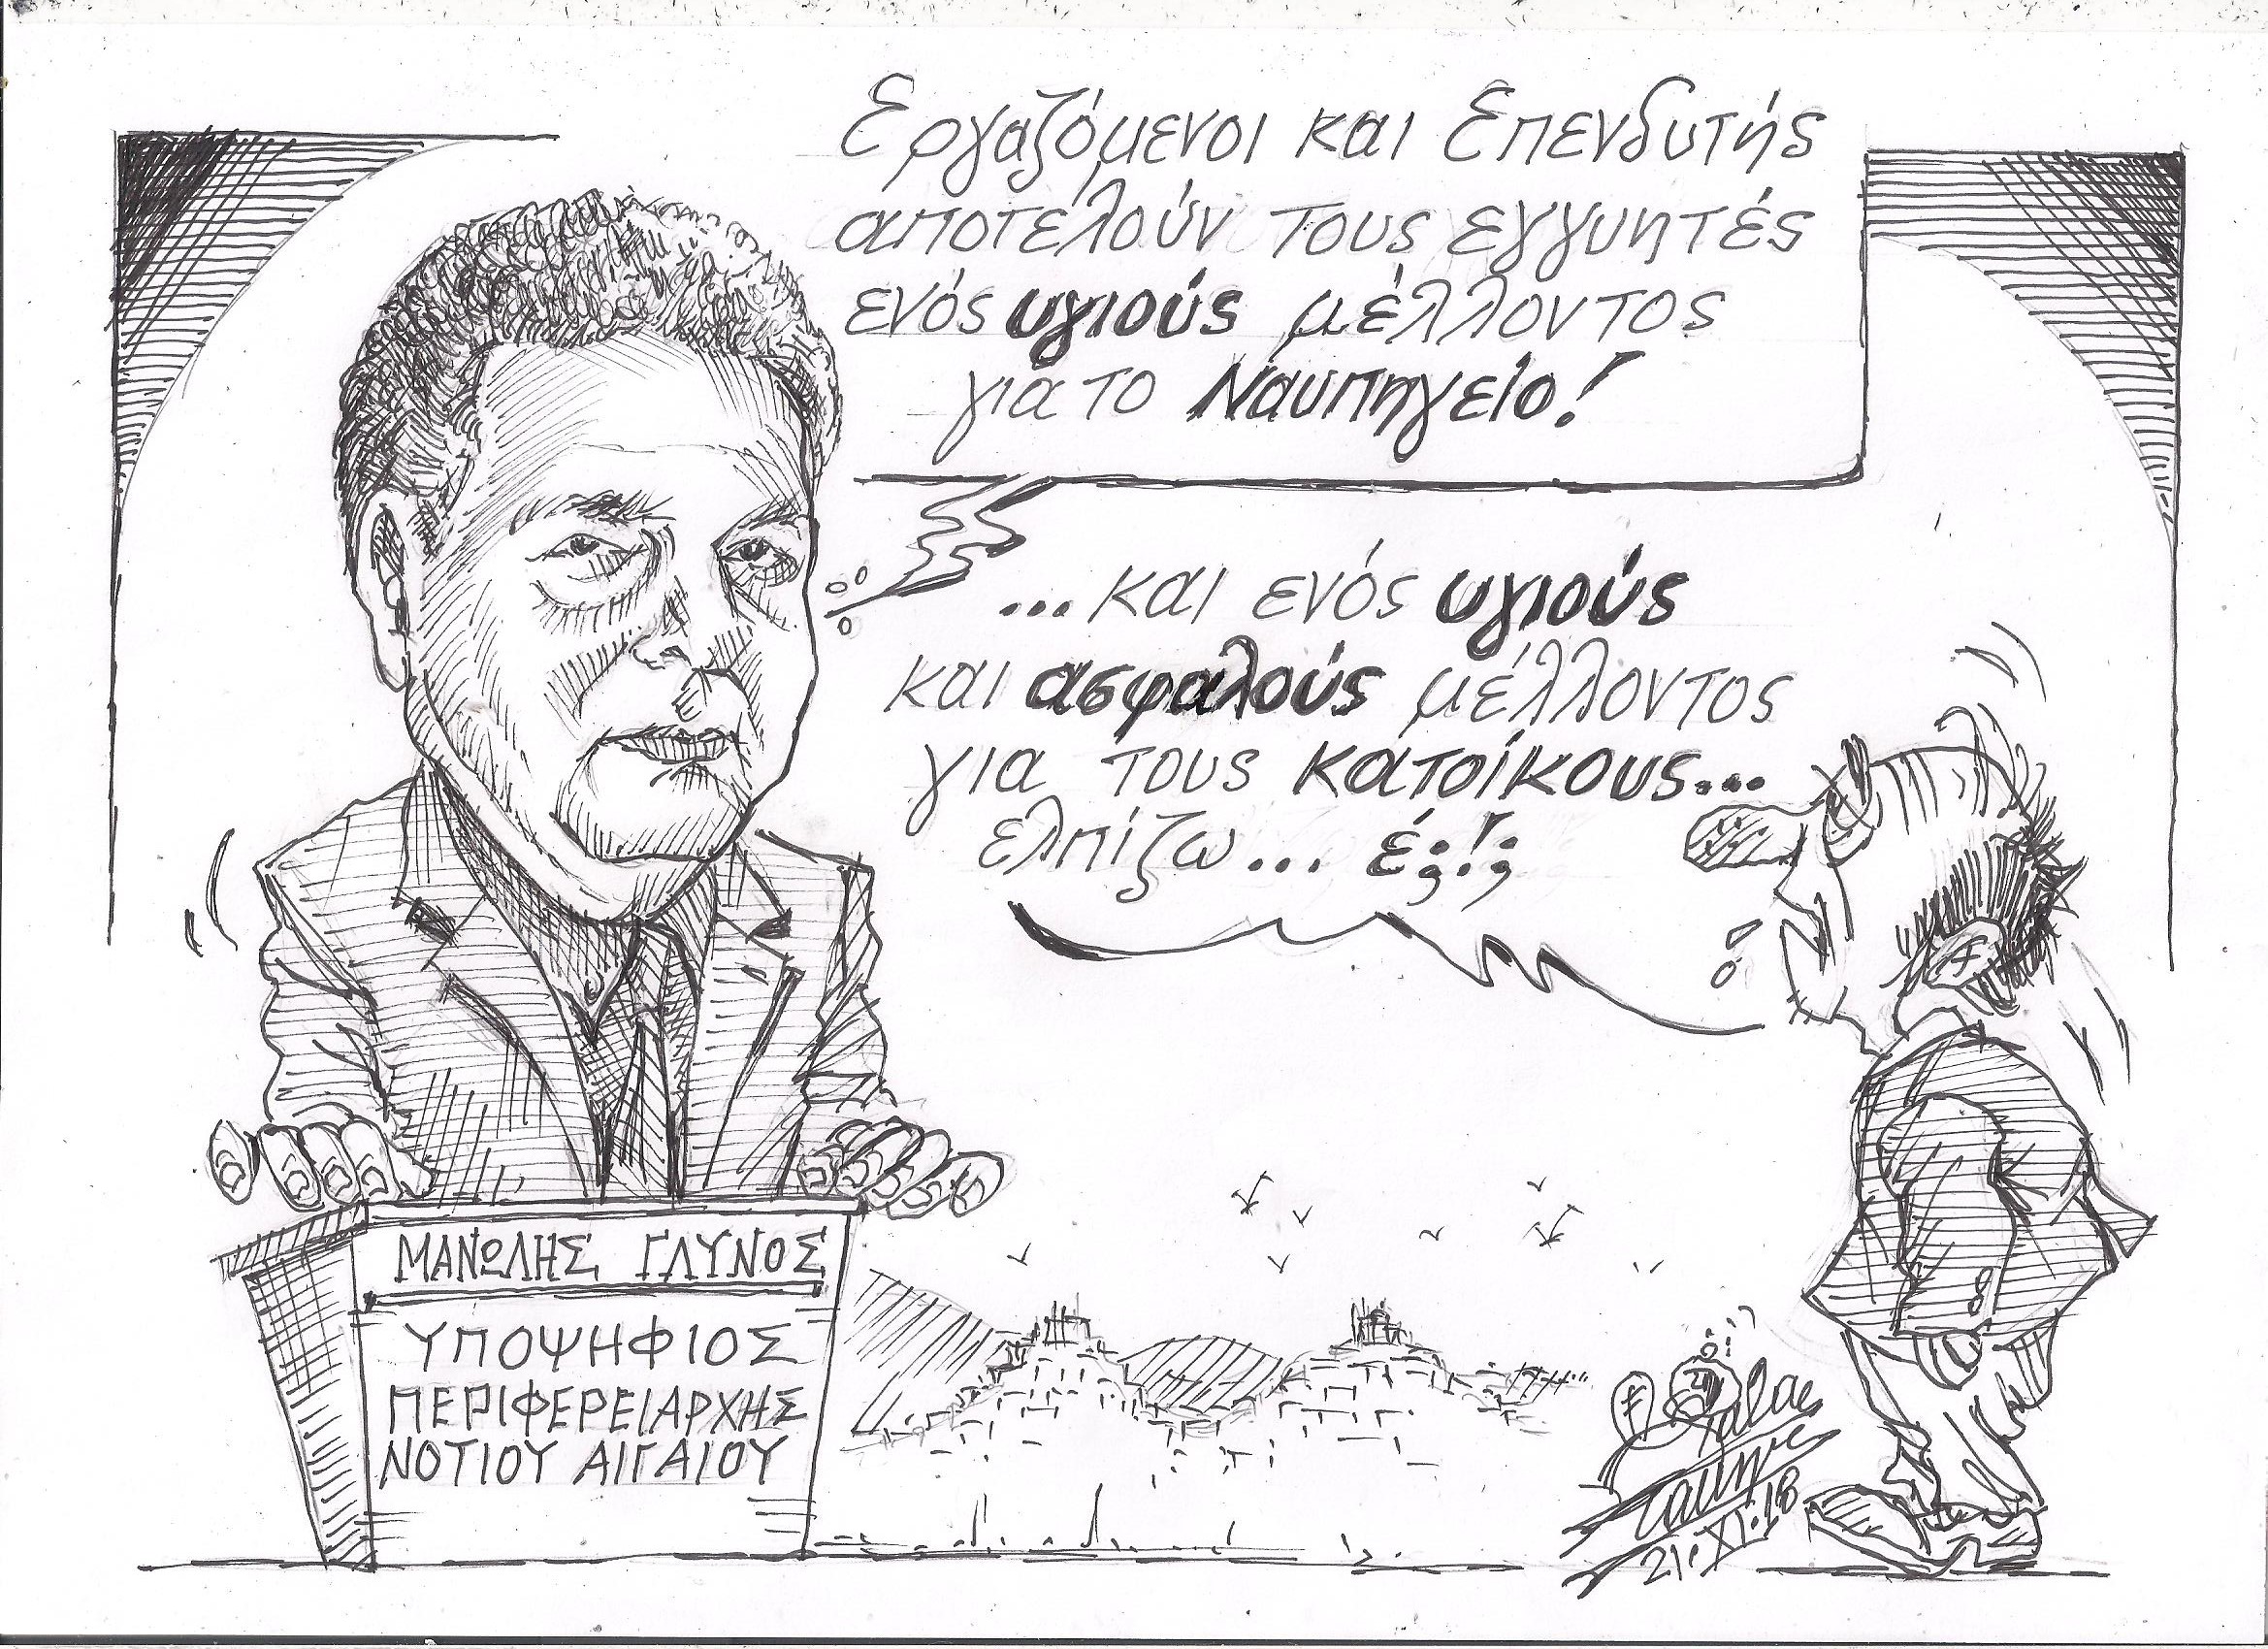 Εργαζόμενοι και Επενδυτής
αποτελούν τους εγγυητές
ενός υγιούς μέλλοντος
για το Ναυπηγείο!
...και ενός υγιούς
και ασφαλούς μέλλοντος
για τους κατοίκους...
ελπίζω... έ;!;
ΜΑΝΩΛΗΣ ΓΛΥΝΟΣ
ΥΠΟΨΗΦΙΟΣ
ΠΕΡΙΦΕΡΕΙΑΡΧΗΣ
ΝΟΤΙΟΥ ΑΙΓΑΙΟΥ
21.XI.18